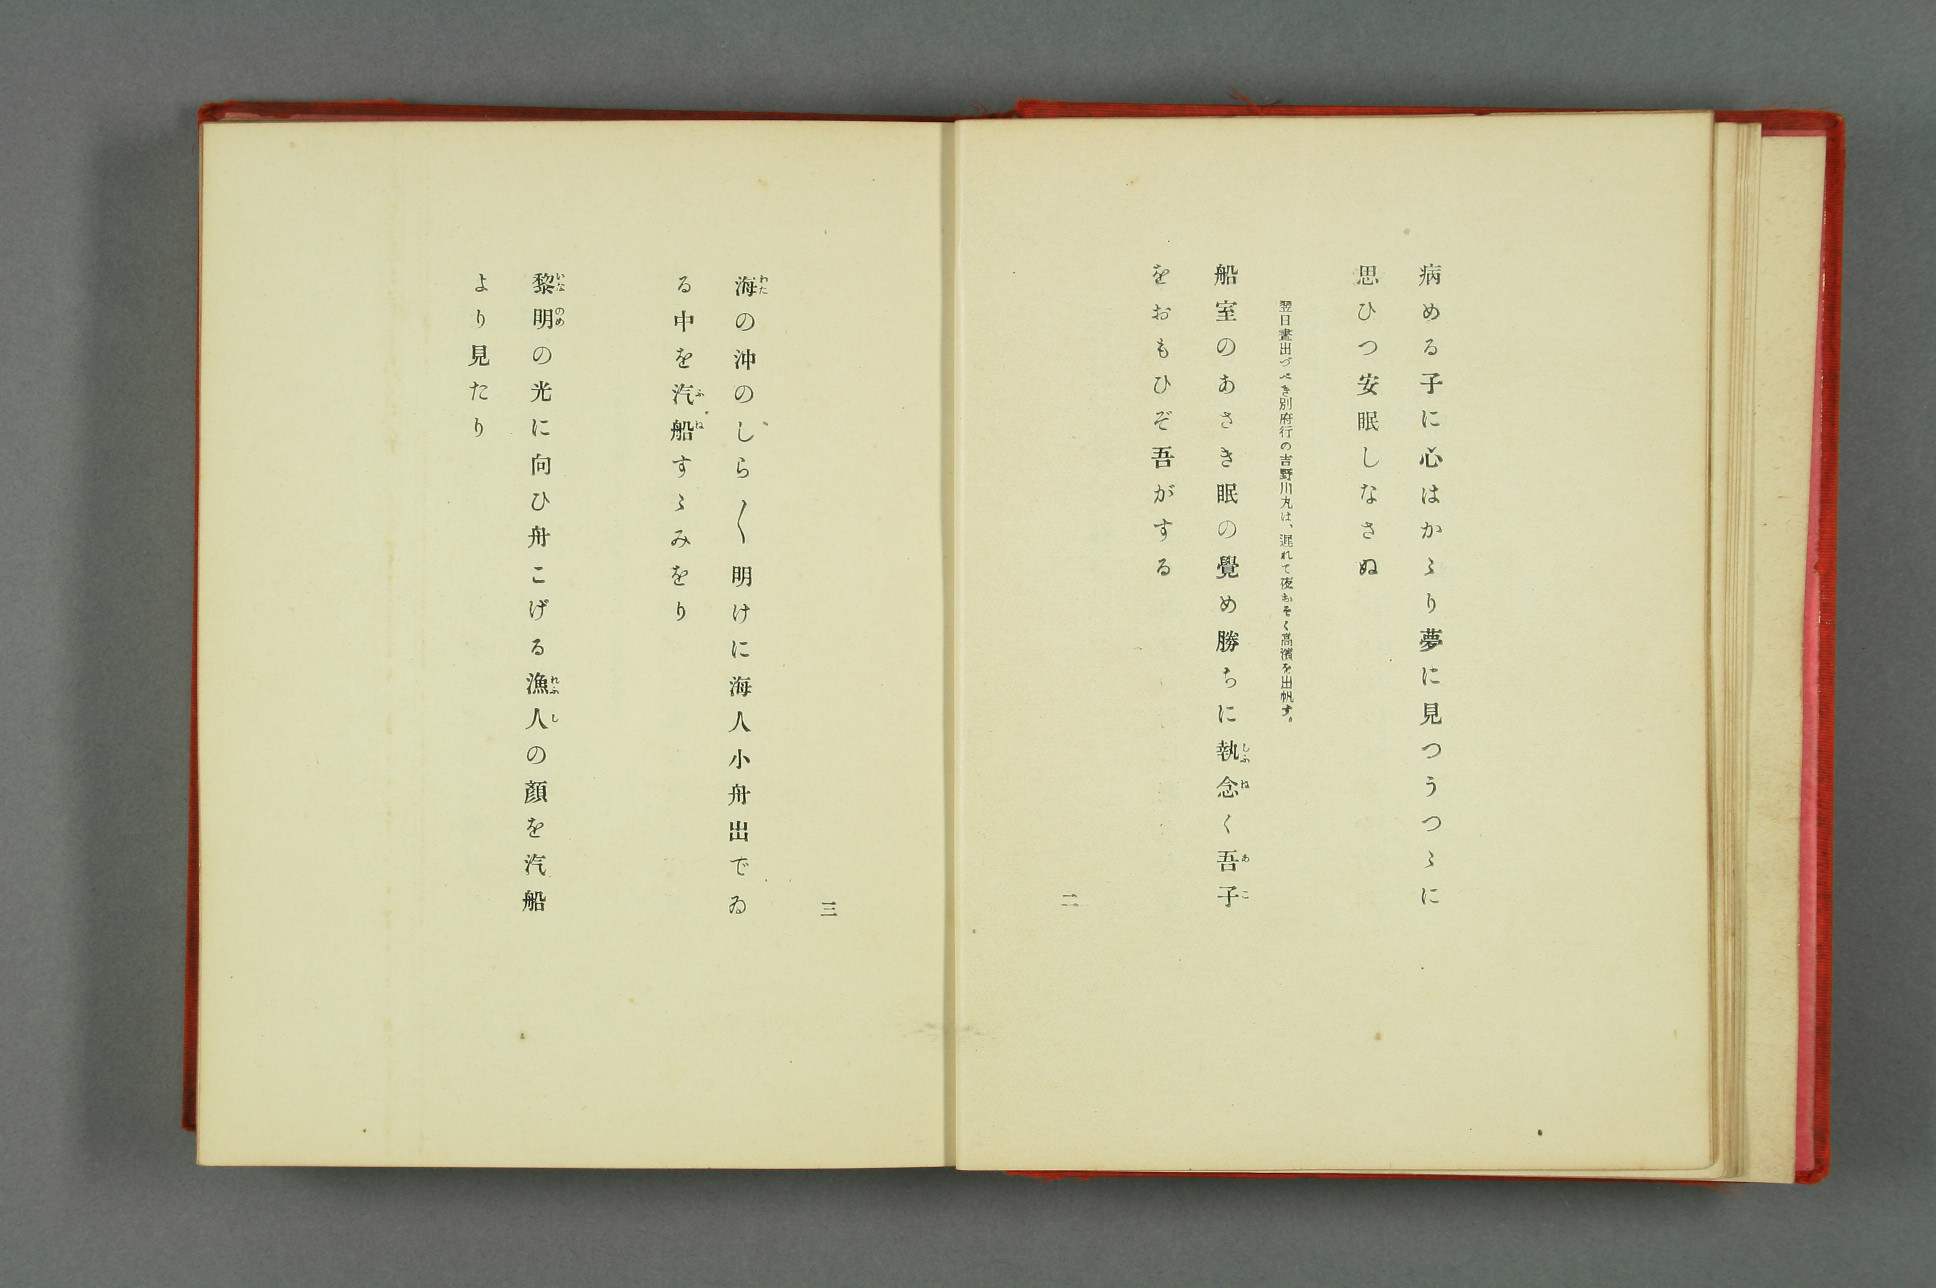 病める子に心はかゝり夢に見つうつゝに
思ひつ安眠しなさぬ
翌日晝出づべき別府行の吉野川丸は、遲れて夜おそく高濱を出帆す。
船室のあさき眠の覺め勝ちに執念く吾子
をおもひぞ吾がする
二
三
海の沖のしら〳〵明けに海人小舟出でゐ
る中を汽船すゝみをり
黎明の光に向ひ舟こげる漁人の顏を汽船
より見たり